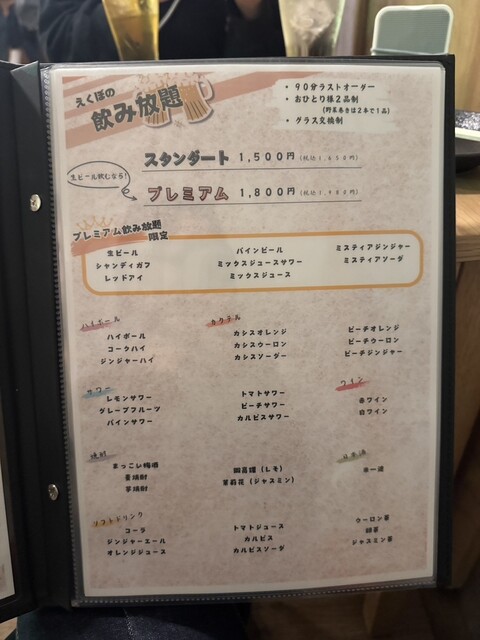 えくぼの
飲み放題
・90分ラストオーダー
・おひとり様2品制
(野菜巻きは2本で1品)
・グラス交換制
スタンダート 1,500円 (税込1,650円)
生ビール飲むなら!
プレミアム 1,800円 (税込1,980円)
プレミアム飲み放題
限定
生ビール パインビール ミスティアジンジャー
シャンディガフ ミックスジュースサワー ミスティアソーダ
レッドアイ ミックスジュース
ハイボール
ハイボール
コークハイ
ジンジャーハイ
カクテル
カシスオレンジ ピーチオレンジ
カシスウーロン ピーチウーロン
カシスソーダー ピーチジンジャー
サワー
レモンサワー トマトサワー
グレープフルーツ ピーチサワー
パインサワー カルピスサワー
ワイン
赤ワイン
白ワイン
焼酎
まっこい梅酒
麦焼酎
芋焼酎
鍛高譚(レモ)
茉莉花(ジャスミン)
日本酒
米一途
ソフトドリンク
コーラ トマトジュース ウーロン茶
ジンジャーエール カルピス 緑茶
オレンジジュース カルピスソーダ ジャスミン茶